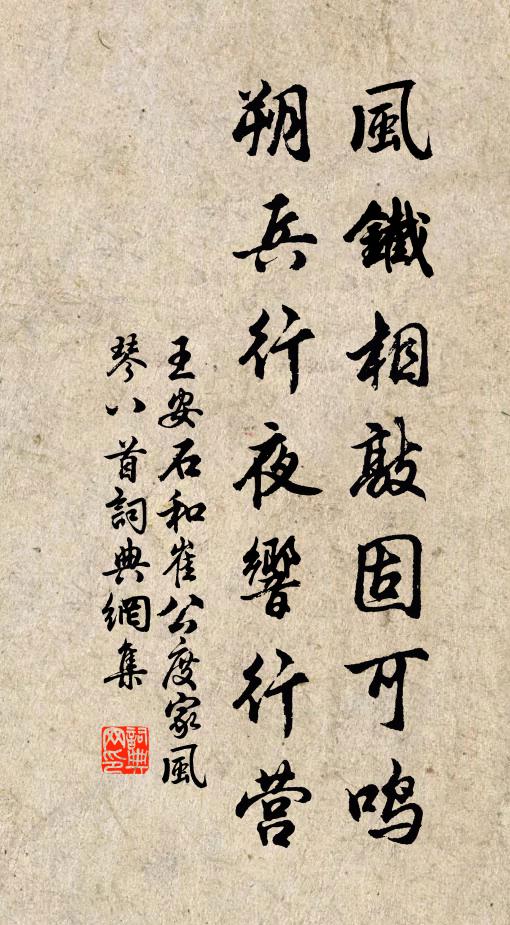 風鐵相敲固可鸣
朔兵行夜響行营
王安石和崔公度家風
琴八首詞典網集
詞典
网印